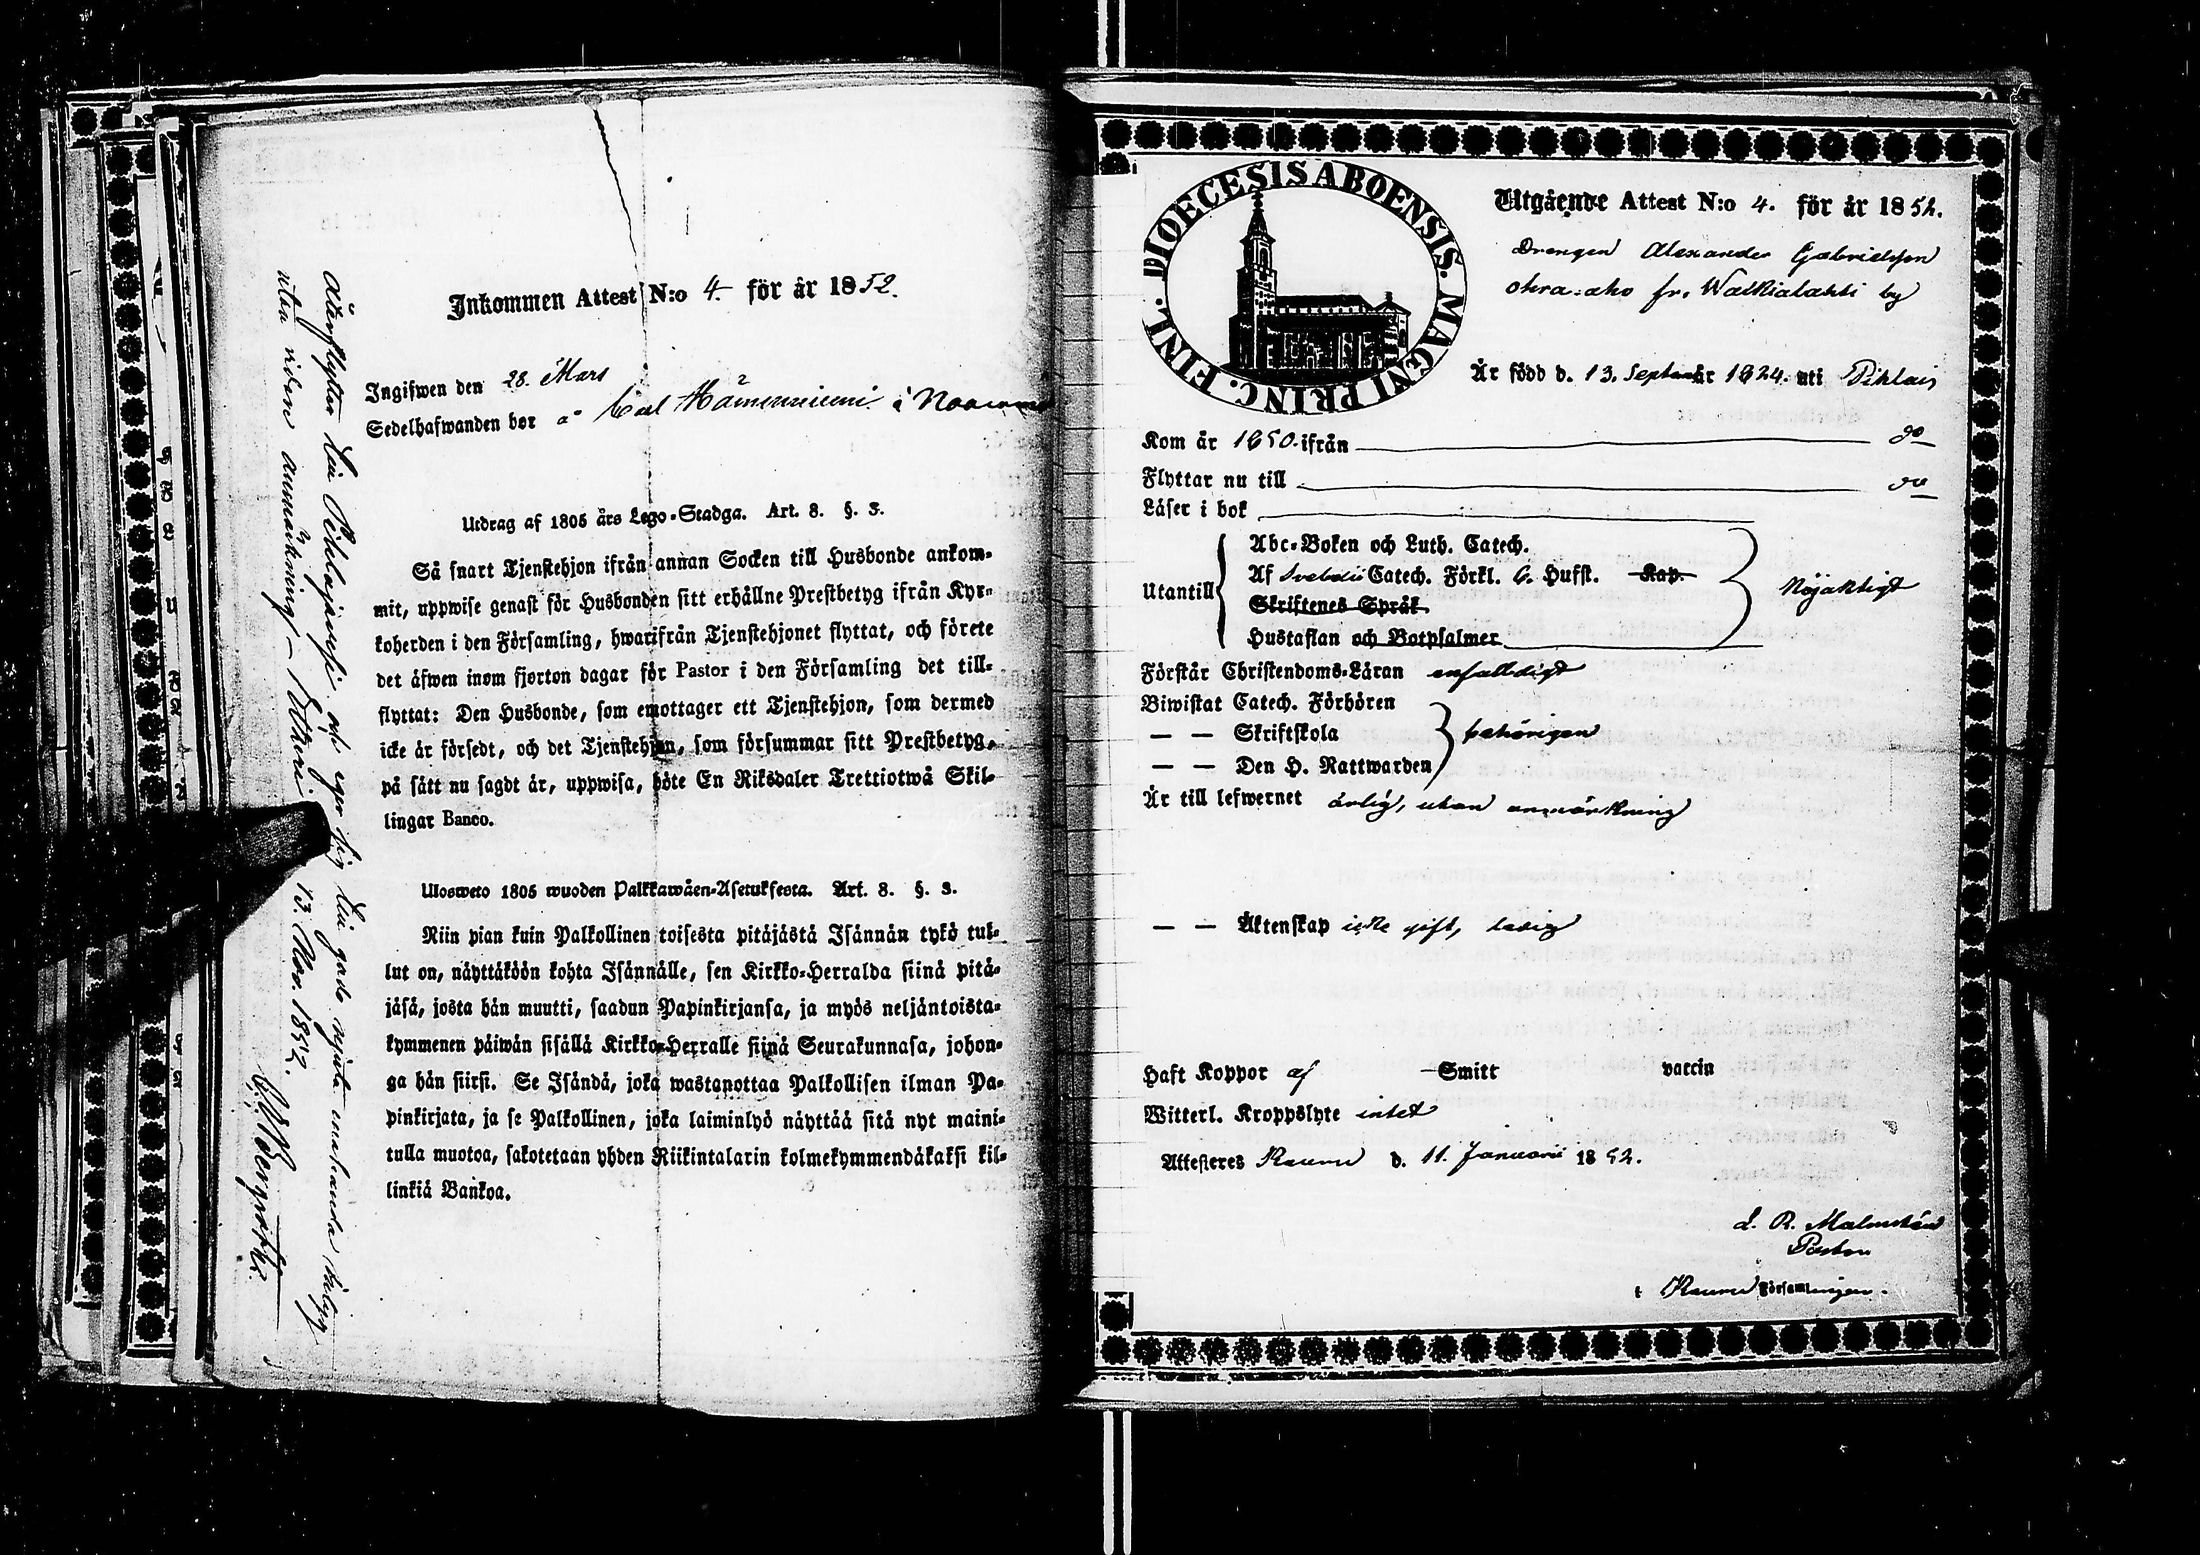 Inkommen Attest N:o 4. för år 1852.
Ingifwen den 28. Mars
Sedelhafwanden bor å Carl i
Utdrag af 1805 års Lego-Stadga. Art. 8. §. 3.
Så snart Tjenstehjon ifrån annan Socken till Husbonde ankom-
mit, uppwise genast för Husbonden sitt erhållne Prestbetyg ifrån Kyr-
koherden i den Församling, hwarifrån Tjenstehjonet flyttat, och förete
det äfwen inom fjorton dagar för Pastor i den Församling det till-
flyttat: Den Husbonde, som emottager ett Tjenstehjon, som dermed
icke är försedt, och det Tjenstehjon, som försummar sitt Prestbetyg,
på sätt nu sagdt är, uppwisa, böte En Riksdaler Trettiotwå Skil-
lingar Banco.
Ulosweto 1805 wuoden Palkkawäen-Asetuksesta. Art. 8. §. 3.
Niin pian kuin Palkollinen toisesta pitäjästä Isännän tykö tul-
lut on, näyttäköön kohta Isännälle, sen Kirkko-Herralda siinä pitä-
jäsä, josta hän muutti, saadun Papinkirjansa, ja myös neljäntoista-
kymmenen päiwän sisällä Kirkko-Herralle siinä Seurakunnasa, johon-
ga hän siirsi. Se Isändä, joka wastanottaa Palkollisen ilman Pa-
pinkirjata, ja se Palkollinen, joka laiminlyö näyttää sitä nyt maini-
tulla muotoa, sakotetaan yhden Riikintalarin kolmekymmendäkaksi kil-
linkiä Bankoa.
Återflyttar till Pihlajaluxi och eger sig till goda njuta enahanda betyg
utan vidare anmärkning. – 13. Nov. 1852.
DIOECESIS ABOENSIS. MAGNI PRINC. FINL.
Utgående Attest N:o 4. för år 1852.
Drengen Alexander Gabrielsson
fr. by
Är född d. 13. September 1824. uti
Kom år 1850. ifrån
Flyttar nu till
Läser i bok
Utantill
Abc-Boken och Luth. Catech.
Af Svebelii Catech. Förkl. 6. Hufst. Kap.
Skriftenes Språk.
Hustaflan och Botpsalmer
Nöjaktigt
Förstår Christendoms-Läran enfalldigt
Biwistat Catech. Förhören
— — Skriftskola
— — Den H. Nattwarden
behörigen
Är till lefwernet ärlig, utan anmärkning
— — Äktenskap icke gift, ledig
Haft Koppor af Smitt vaccin
Witterl. Kroppslyte intet
Attesteres Raumo d. 11. Januarii 1852.
Malmstén
Pastor
i Raumo Församlingen.